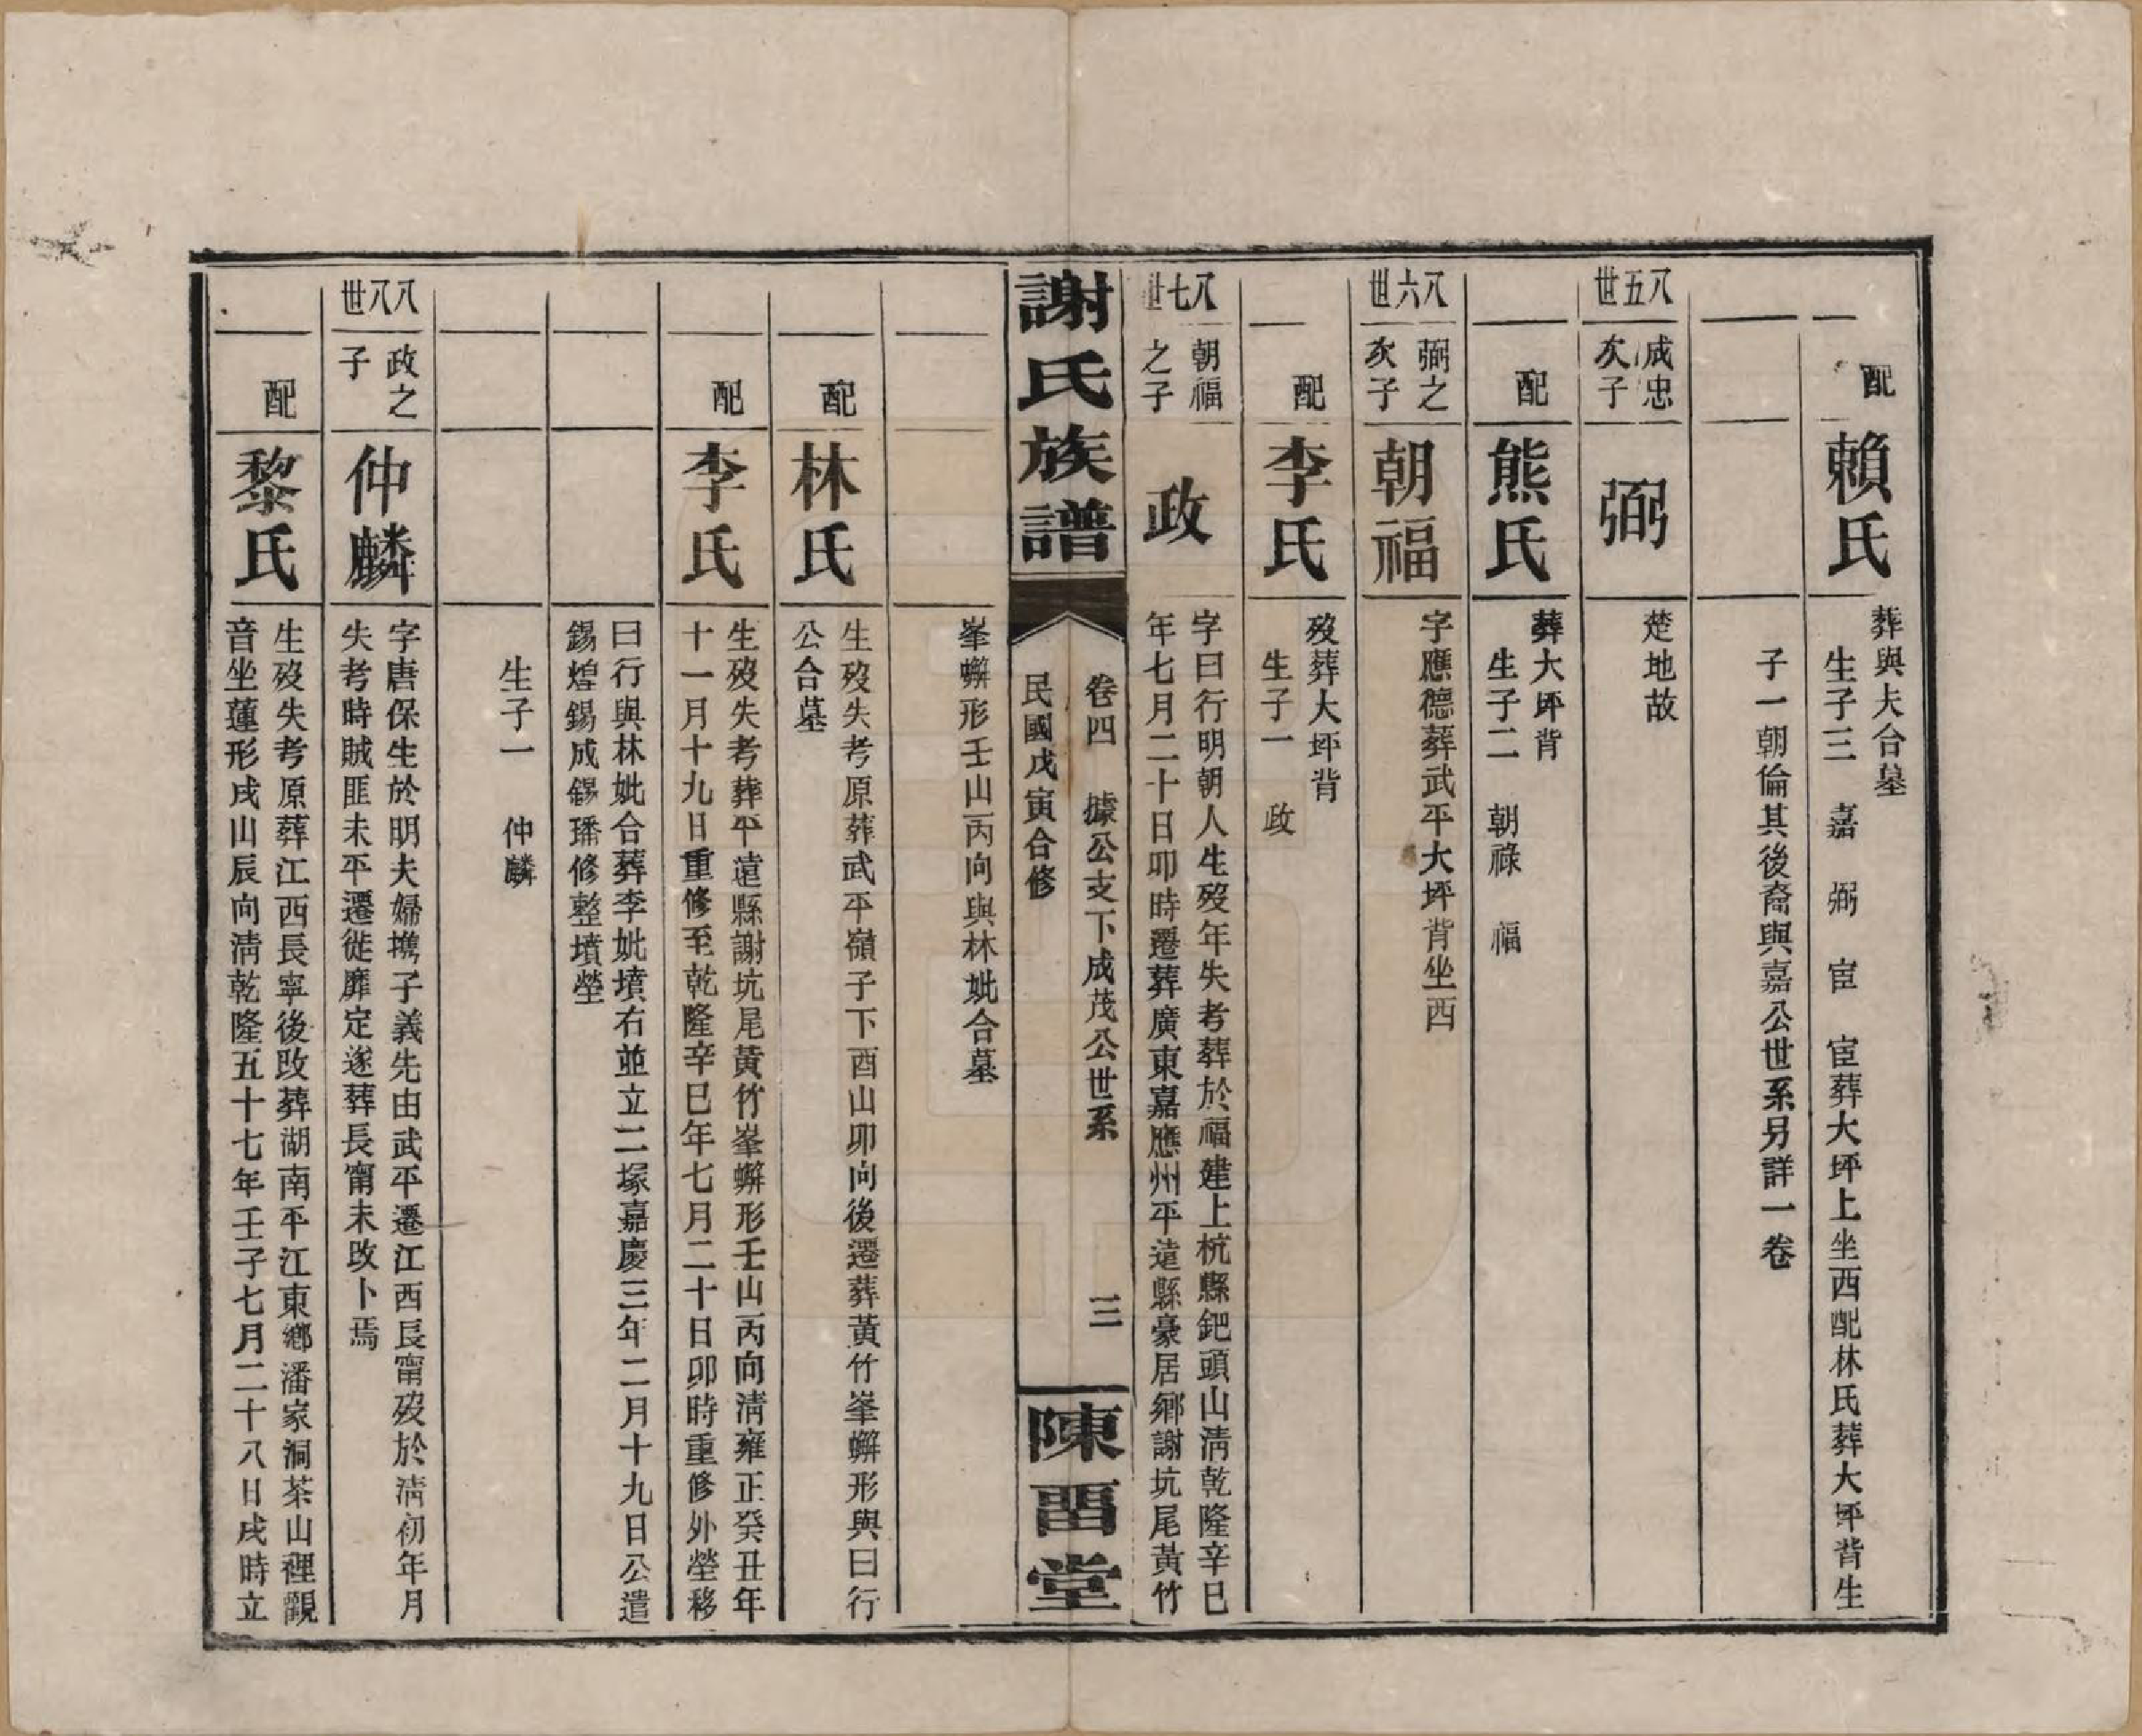 配
賴氏
葬與夫合墓
生子三 嘉 弼 宦 宦葬大坪上坐西配林氏葬大坪背生
子一朝倫其後裔與嘉公世系另詳一卷
八五世
成忠
次子
弼
楚地故
配
熊氏
葬大坪背
生子二 朝祿 福
八六世
弼之
次子
朝福
字應德葬武平大坪背坐西
配
李氏
歿葬大坪背
生子一 政
八七世
朝福
之子
政
字曰行明朝人生歿年失考葬於福建上杭縣鈀頭山淸乾隆辛巳
年七月二十日卯時遷葬廣東嘉應州平遠縣豪居鄉謝坑尾黃竹
謝氏族譜
卷四 據公支下成茂公世系 三
民國戊寅合修
陳畱堂
峯螃形壬山丙向與林妣合墓
配
林氏
生歿失考原葬武平嶺子下酉山卯向後遷葬黃竹峯螃形與曰行
公合墓
配
李氏
生歿失考葬平遠縣謝坑尾黃竹峯螃形壬山丙向淸雍正癸丑年
十一月十九日重修至乾隆辛巳年七月二十日卯時重修外塋移
曰行與林妣合葬李妣墳右並立二塚嘉慶三年二月十九日公遣
錫煌錫成錫璠修整墳塋
生子一 仲麟
八八世
政之
子
仲麟
字唐保生於明夫婦㩗子義先由武平遷江西長甯歿於淸初年月
失考時賊匪未平遷徙靡定遂葬長甯未改卜焉
配
黎氏
生歿失考原葬江西長寧後改葬湖南平江東鄉潘家洞茶山裡觀
音坐蓮形戌山辰向淸乾隆五十七年壬子七月二十八日戌時立